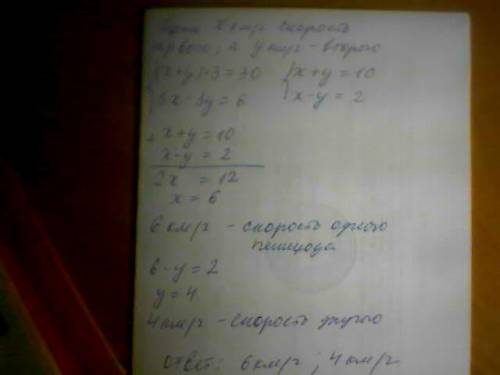 х км/г скорость
первого, а у км/г - второго
{(x+y)·3=30 {x+y=10
{3x-3y=6 {x-y=2
+ x+y=10
x-y=2
2x =12
x=6
6 км/г - скорость одного
пешехода
6-y=2
y=4
4 км/г - скорость другого
Ответ: 6 км/г ; 4 км/г